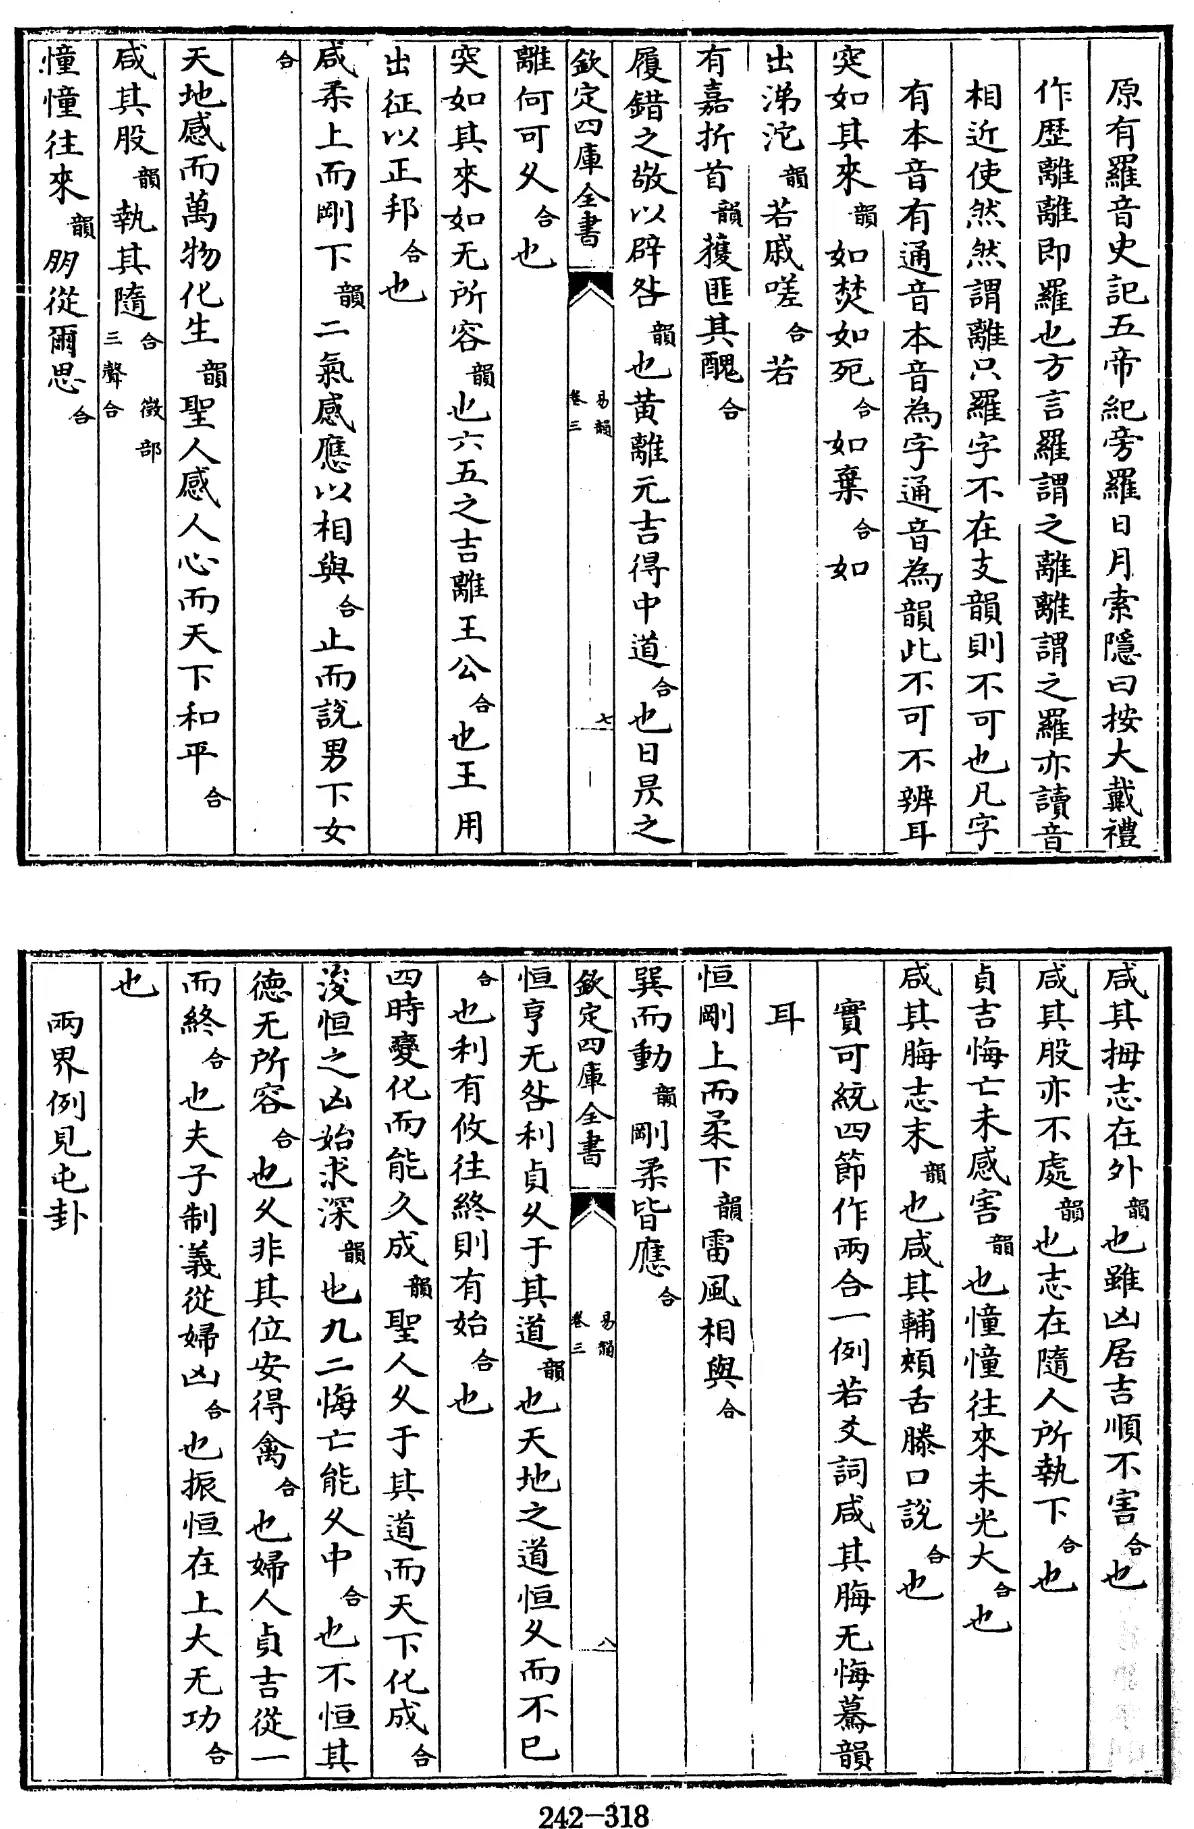 原有羅音史記五帝紀旁羅日月索隱曰按大戴禮
作歷離離即羅也方言羅謂之離離謂之羅亦讀音
相近使然然謂離只羅字不在支韻則不可也凡字
有本音有通音本音為字通音為韻此不可不辨耳
突如其來韻如焚如死合如棄合如
出涕沱韻若戚嗟合若
有嘉折首韻獲匪其醜合
履錯之敬以辟咎韻也黃離元吉得中道合也日昃之
欽定四庫全書 易韻卷三 七
離何可久合也
突如其來如无所容韻也六五之吉離王公合也王用
出征以正邦合也
咸柔上而剛下韻二氣感應以相與合止而說男下女
合
天地感而萬物化生韻聖人感人心而天下和平合
咸其股韻執其隨合徵部三聲合
憧憧往來韻朋從爾思合
咸其拇志在外韻也雖凶居吉順不害合也
咸其股亦不處韻也志在隨人所執下合也
貞吉悔亡未感害韻也憧憧往來未光大合也
咸其脢志末韻也咸其輔頰舌滕口說合也
實可統四節作兩合一例若爻詞咸其脢无悔驀韻
耳
恒剛上而柔下韻雷風相與合
巽而動韻剛柔皆應合
欽定四庫全書 易韻卷三 八
恒亨无咎利貞久于其道韻也天地之道恒久而不已
合也利有攸往終則有始合也
四時變化而能久成韻聖人久于其道而天下化成合
浚恒之凶始求深韻也九二悔亡能久中合也不恒其
德无所容合也久非其位安得禽合也婦人貞吉從一
而終合也夫子制義從婦凶合也振恒在上大无功合
也
兩界例見屯卦
242-318